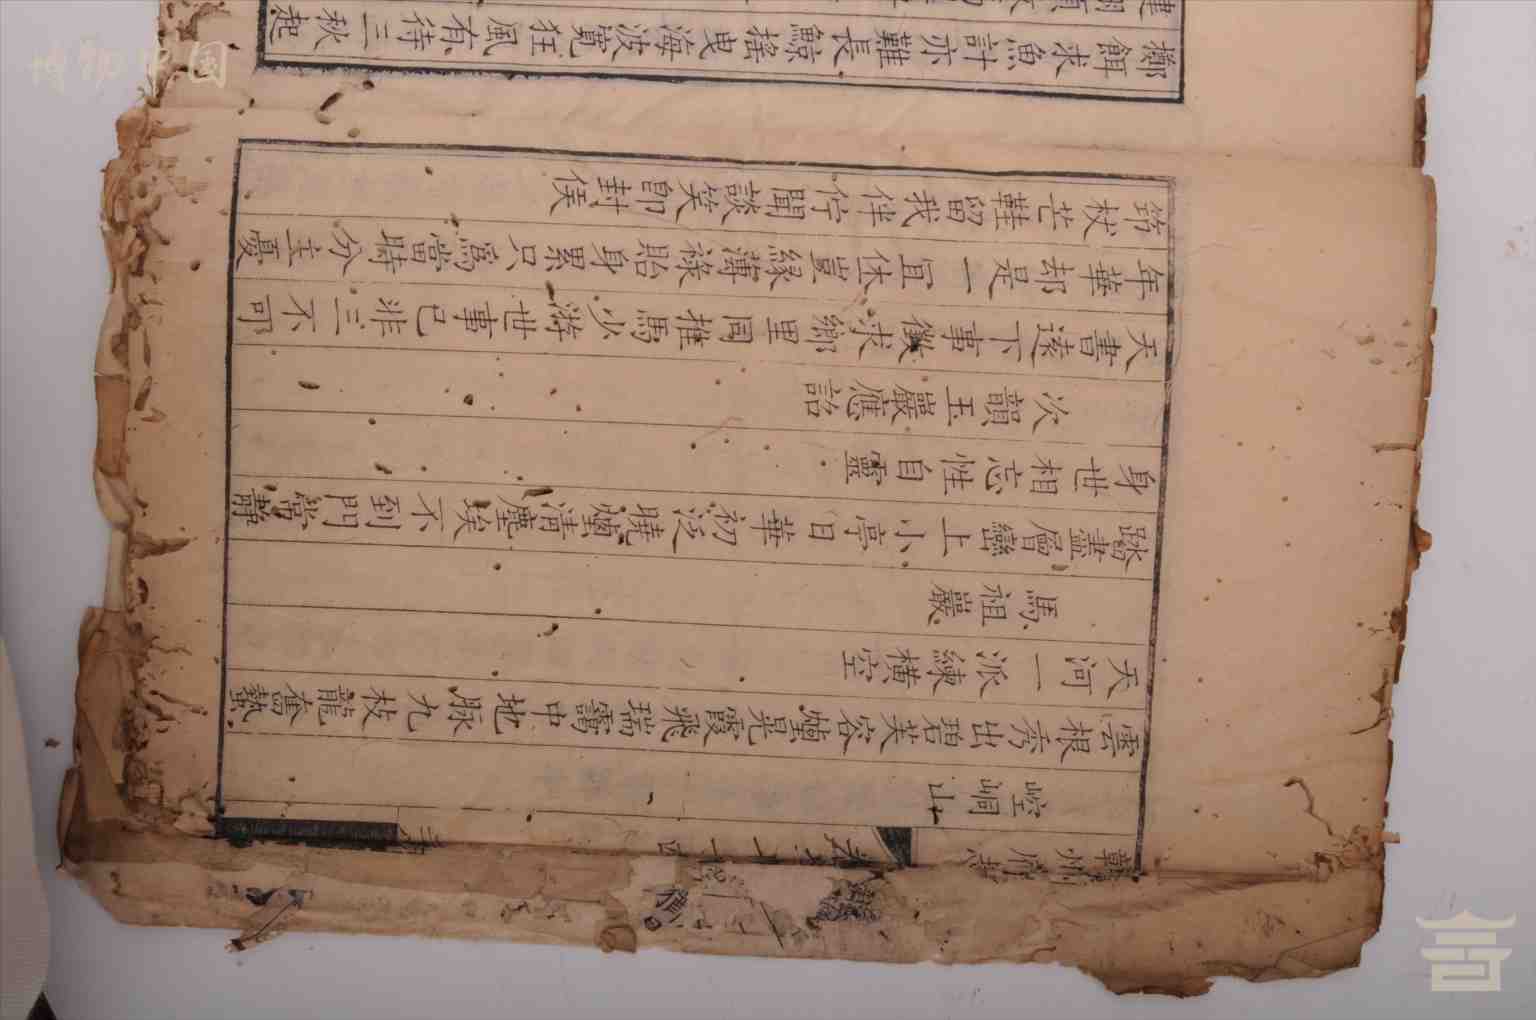 贛州府志
崆峒山
雲根秀出碧芙蓉煙晃霞飛瑞靄中地脉九枝龍奮蟄
天河一派練橫空
馬祖巖
踏盡層巒上小亭日華初泛曉煙清塵埃不到門常靜
身世相忘性自靈
次韻玉巖應詔
天書遠下事徵求鄉里同推馬少游世事已非三不可
年華却是一宜休豈緣薄祿貽身累只為當時分主憂
筇杖芒鞋留我伴佇聞談笑卽封侯
擲餌求魚計亦難長鯨搖曳海波寬狂風有待三秋起
博物中国